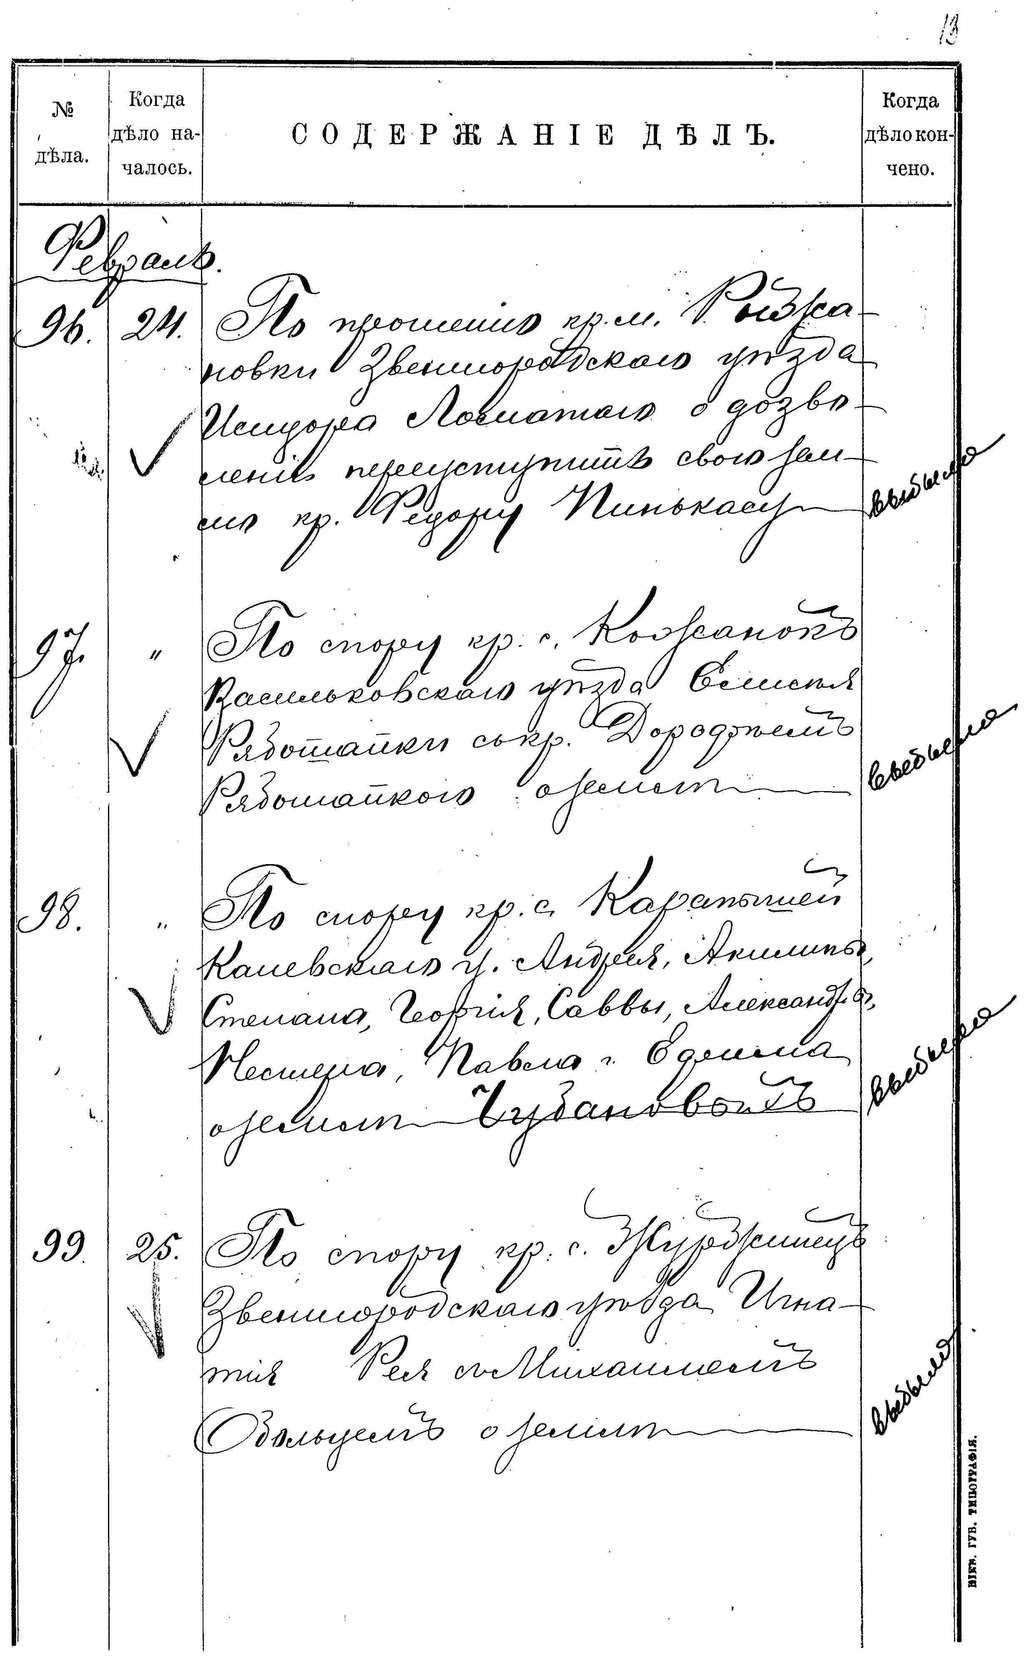 13
№ дѣла.
Когда дѣло началось.
СОДЕРЖАНІЕ ДѢЛЪ.
Когда дѣло кончено.
Февраль.
96. 24. По прошенію кр. м. Рыжа-
новки Звенигородскаго уѣзда
Исидора Лохматаго о дозво-
леніи переуступить свою зем-
лю кр. Федору Пинькасу
выбыло
97. " По спору кр. с. Кожанокъ
Васильковскаго уѣзда Елисея
Рябошапки съ кр. Дорофеемъ
Рябошапкою о землѣ
выбыло
98. " По спору кр. с. Карапышей
Каневскаго у. Андрея, Акилины,
Степана, Георгія, Саввы, Александры,
Нестера, Павла и Ефима
о землѣ Чубановыхъ
выбыло
99. 25. По спору кр. с. Журжинецъ
Звенигородскаго уѣзда Игна-
тія Рея съ Михаиломъ
о землѣ
выбыло
КІЕВ. ГУБ. ТИПОГРАФІЯ.